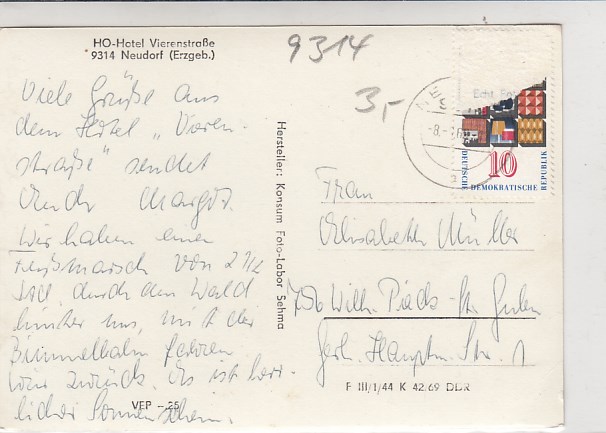 HO-Hotel Vierenstraße
9314 Neudorf (Erzgeb.)
9314
3,-
Viele Grüße aus
dem Hotel „Vieren-
straße" sendet
Margot.
Wir haben einen
Fußmarsch von 2 1/2
Std. durch den Wald
hinter uns, mit der
Bimmelbahn fahren
wir zurück. Es ist herr-
licher Sonnenschein.
VEP - 25
Hersteller: Konsum Foto-Labor Sehma
Echt Fot
-8.-
10
DEUTSCHE DEMOKRATISCHE REPUBLIK
Frau
Elisabeth Müller
Wilh. Pieck-Str. Guben
Gerh. Hauptm. Str. 1
F III/1/44 K 42.69 DDR